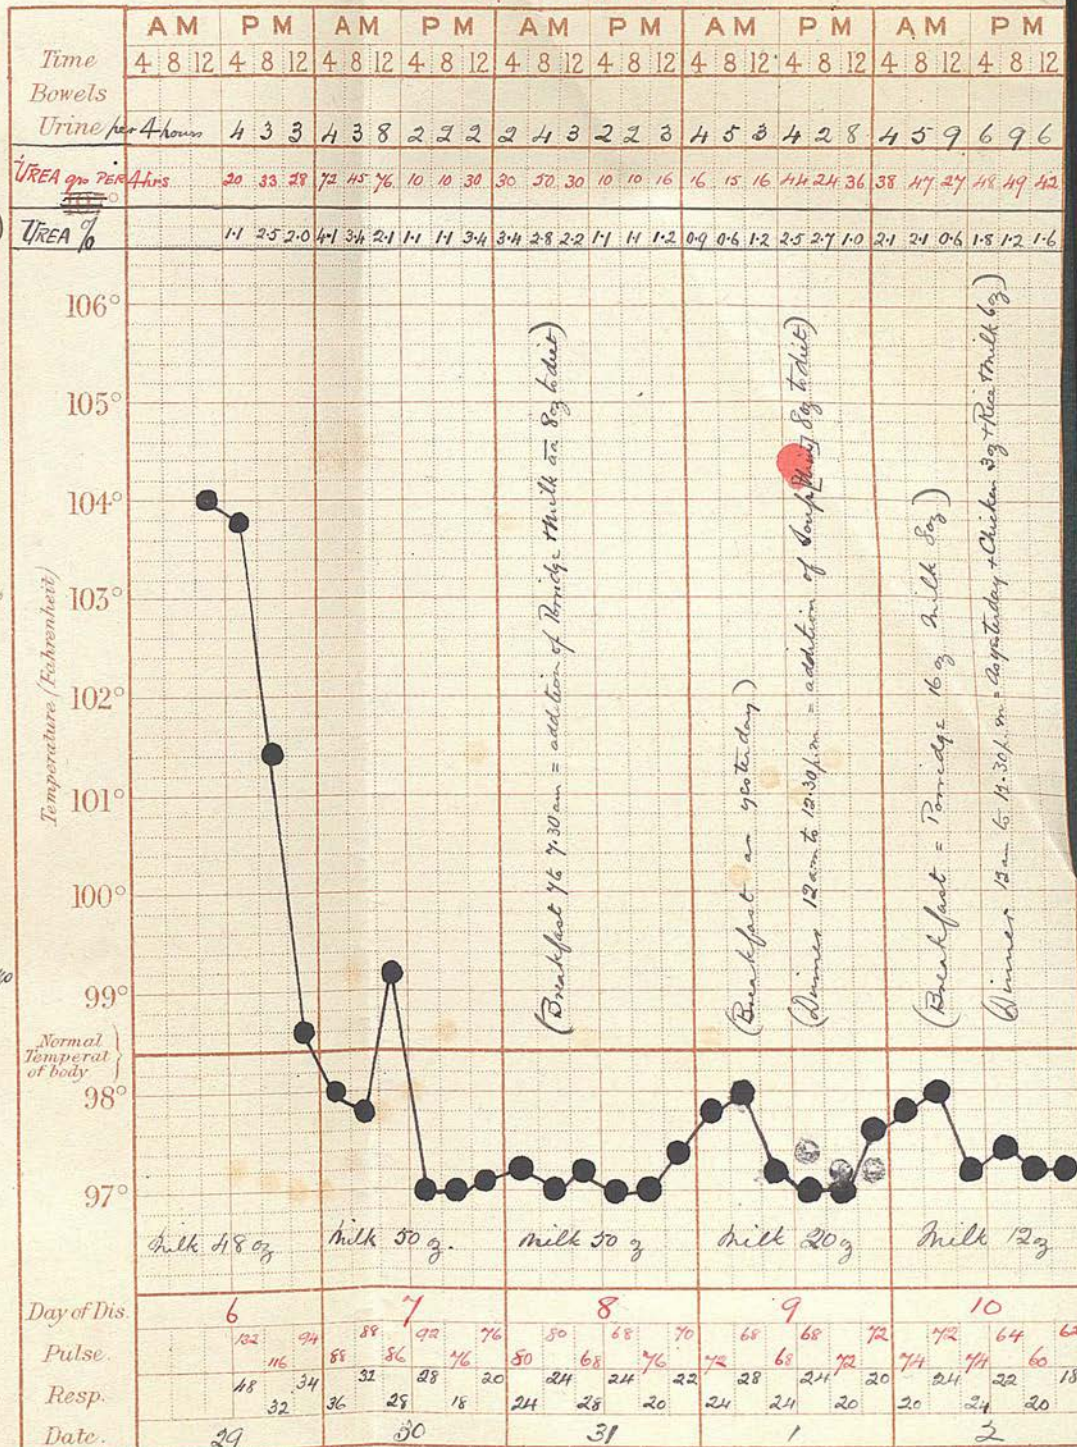 AM PM AM PM AM PM AM PM AM PM
Time 4 8 12 4 8 12 4 8 12 4 8 12 4 8 12 4 8 12 4 8 12 4 8 12 4 8 12 4 8 12
Bowels
Urine per 4 hours 4 3 3 4 3 8 2 2 2 2 4 3 2 2 3 4 5 3 4 2 8 4 5 9 6 9 6
UREA grs PER 4 hrs 20 33 28 72 45 76 10 10 30 30 50 30 10 10 16 16 15 16 44 24 36 38 47 27 48 49 42
UREA % 1.1 2.5 2.0 4.1 3.4 2.1 1.1 1.1 3.4 3.4 2.8 2.2 1.1 1.1 1.2 0.9 0.6 1.2 2.5 2.7 1.0 2.1 2.1 0.6 1.8 1.2 1.6
Temperature (Fahrenheit)
106°
105°
104°
103°
102°
101°
100°
99°
Normal
Temperat
of body
98°
97°
(Breakfast 7.30 am = addition of Porridge + milk aa 8oz to diet)
(Breakfast as yesterday)
(Dinner 12am to 12.30p.m = addition of Soup 8oz to diet)
(Breakfast = Porridge 16oz milk 8oz)
(Dinner 12am to 12.30p.m = As yesterday + Chicken 3oz + Rice + milk 6oz)
Milk 48 oz Milk 50 oz. Milk 50 oz Milk 20 oz Milk 12 oz
Day of Dis. 6 7 8 9 10
Pulse. 132 116 94 88 88 86 92 76 76 80 80 68 68 76 70 72 68 68 68 72 72 74 72 74 64 60 62
Resp. 48 32 34 36 32 28 28 18 20 24 24 28 24 20 22 24 28 24 24 20 20 20 24 24 22 20 18
Date. 29 30 31 1 2